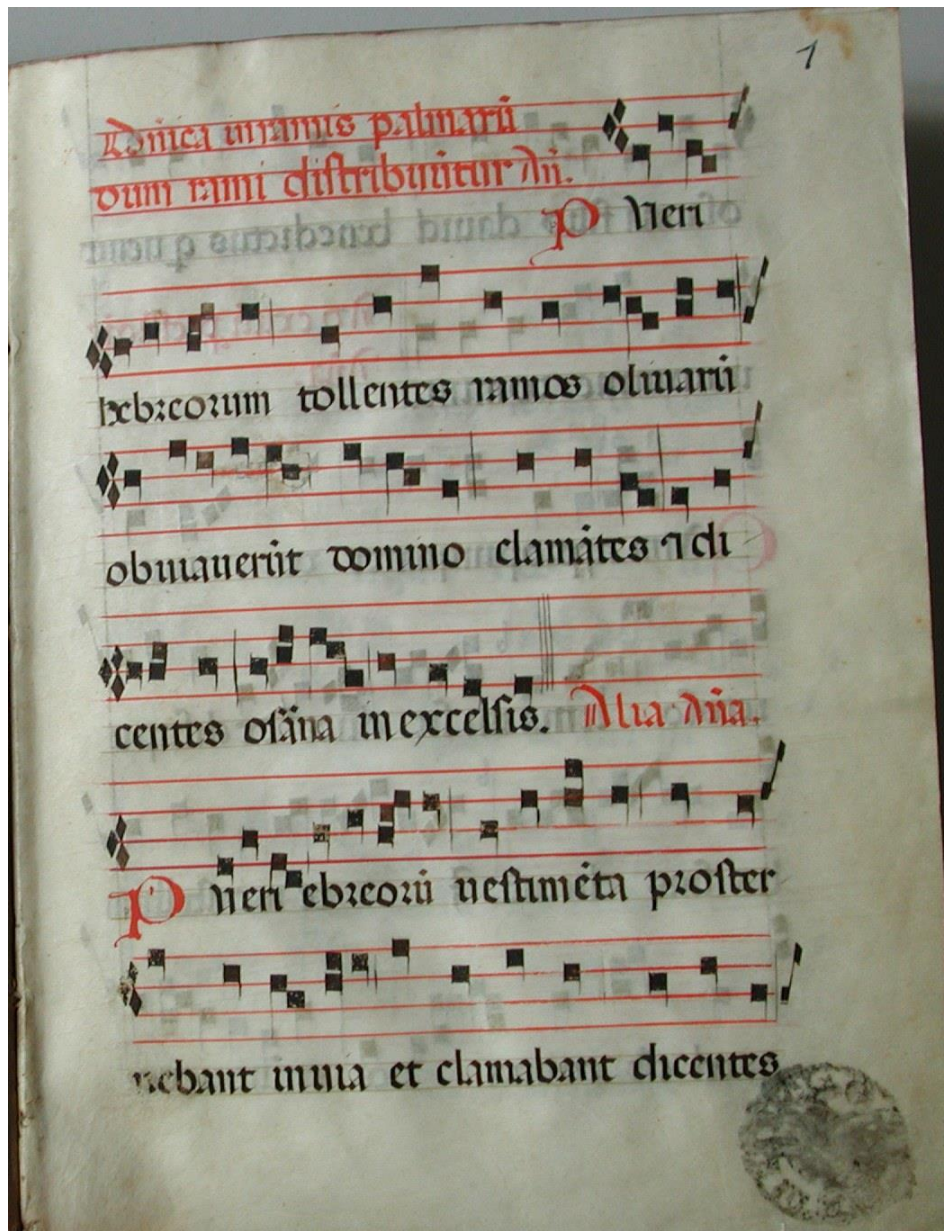 1
Dn̄ica inramis palmarū
dum rami distribuūtur An̄.
P Ueri
hebreorum tollentes ramos oliuarū
obuiauerūt domino clamātes ⁊ di
centes osāna in excelsis. Alia An̄a.
P Ueri ebreorū uestimēta proster
nebant inuia et clamabant dicentes